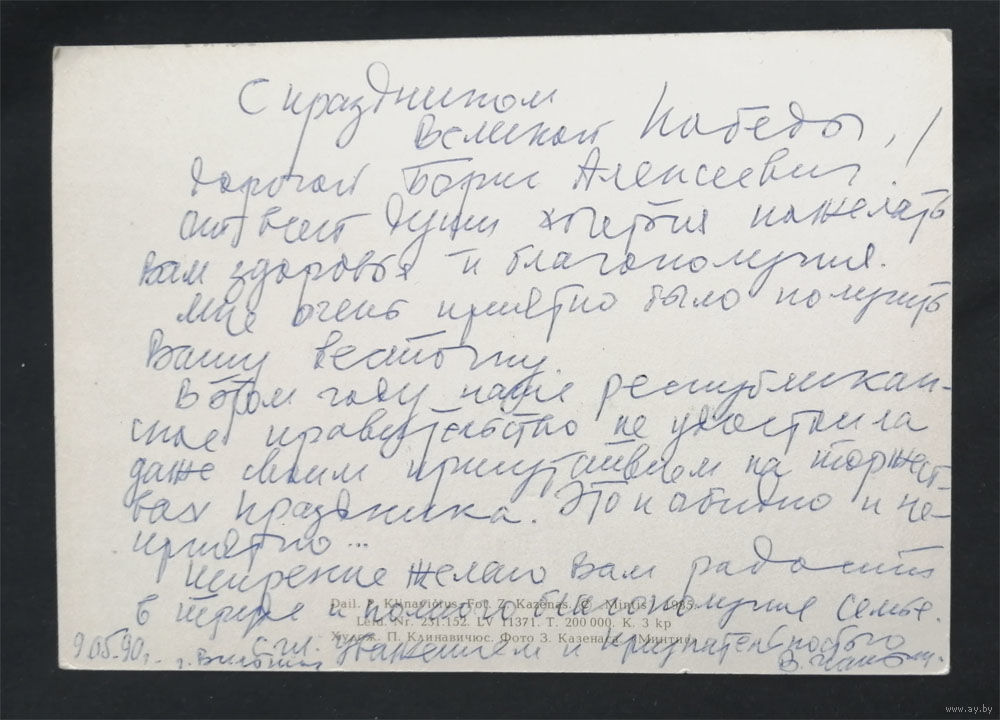 С праздником
Великой Победы, !
Дорогой Борис Алексеевич
от всей души хотелось пожелать
Вам здоровья и благополучия.
Мне очень приятно было получить
Вашу весточку.
В этом году наше республикан-
ское правительство не удостоило
даже своим присутствием на торжест-
вах праздника. Это и обидно и не-
приятно...
Искренне желаю Вам радости
в труде и полного благополучия семье.
Dail. P. Klinavičius. Fot. Z. Kazėnas. © „Mintis“, 1985.
Leid. Nr. 231.152. LV 11371. T. 200 000. K. 3 kp
Худож. П. Клинавичюс. Фото З. Казенаса. „Минтис“
С уважением и признательностью
9.05.90 г.
г. Вильнюс
www.ay.by